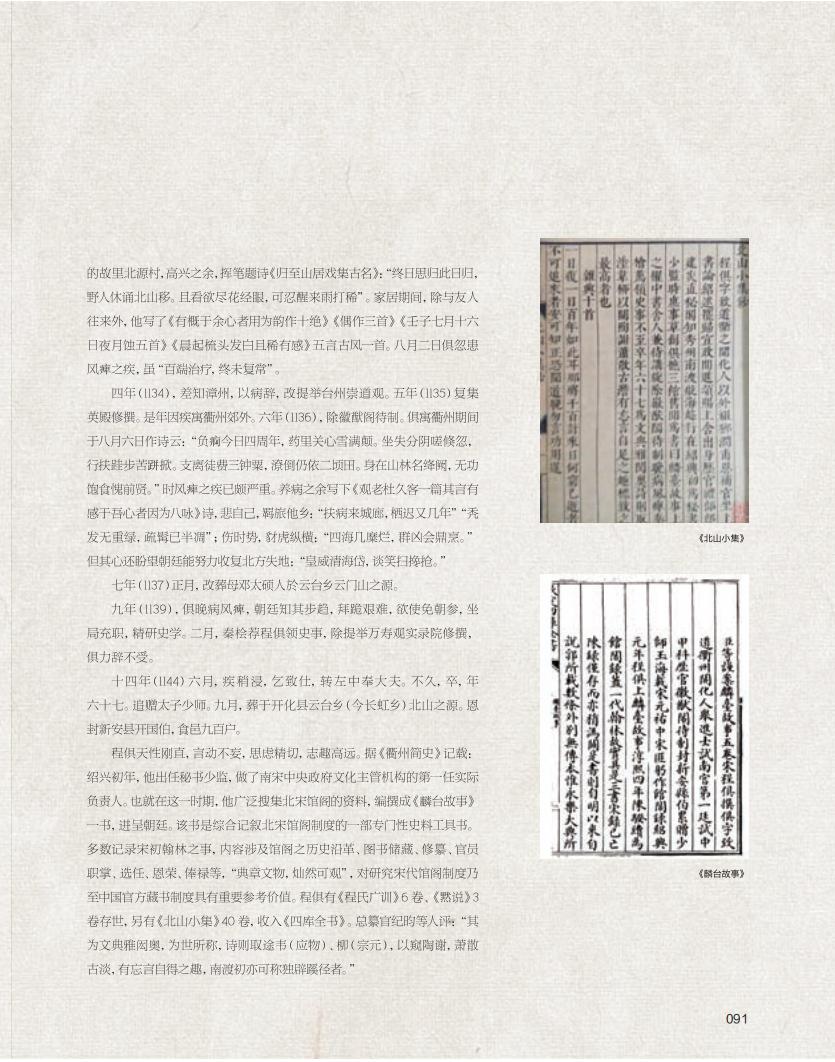 的故里北源村，高兴之余，挥笔题诗《归至山居戏集古名》：“终日思归此日归，
野人休诵北山移。且看欲尽花经眼，可忍醒来雨打稀”。家居期间，除与友人
往来外，他写了《有慨于余心者用为韵作十绝》《偶作三首》《壬子七月十六
日夜月蚀五首》《晨起梳头发白且稀有感》五言古风一首。八月二日俱忽患
风痺之疾，虽“百端治疗，终未复常”。
四年（1134），差知漳州，以病辞，改提举台州崇道观。五年（1135）复集
英殿修撰。是年因疾寓衢州郊外。六年（1136），除徽猷阁待制。俱寓衢州期间
于八月六日作诗云：“负痾今日四周年，药里关心雪满颠。坐失分阴嗟倏忽，
行扶跬步苦跰𨇤。支离徒费三钟粟，潦倒仍依二顷田。身在山林名绛阙，无功
饱食愧前贤。”时风痺之疾已颇严重。养病之余写下《观老杜久客一篇其言有
感于吾心者因为八咏》诗，悲自己，羁旅他乡：“扶病来城廊，栖迟又几年”“秃
发无重绿，疏髯已半凋”；伤时势，豺虎纵横：“四海几糜烂，群凶会鼎烹。”
但其心还盼望朝廷能努力收复北方失地：“皇威清海岱，谈笑扫搀抢。”
七年（1137）正月，改葬母邓太硕人於云台乡云门山之源。
九年（1139），俱晚病风痺，朝廷知其步趋，拜跪艰难，欲使免朝参，坐
局充职，精研史学。二月，秦桧荐程俱领史事，除提举万寿观实录院修撰，
俱力辞不受。
十四年（1144）六月，疾稍浸，乞致仕，转左中奉大夫。不久，卒，年
六十七。追赠太子少师。九月，葬于开化县云台乡（今长虹乡）北山之源。恩
封新安县开国伯，食邑九百户。
程俱天性刚直，言动不妄，思虑精切，志趣高远。据《衢州简史》记载：
绍兴初年，他出任秘书少监，做了南宋中央政府文化主管机构的第一任实际
负责人。也就在这一时期，他广泛搜集北宋馆阁的资料，编撰成《麟台故事》
一书，进呈朝廷。该书是综合记叙北宋馆阁制度的一部专门性史料工具书。
多数记录宋初翰林之事，内容涉及馆阁之历史沿革、图书储藏、修纂、官员
职掌、选任、恩荣、俸禄等，“典章文物，灿然可观”，对研究宋代馆阁制度乃
至中国官方藏书制度具有重要参考价值。程俱有《程氏广训》6 卷、《默说》3
卷存世，另有《北山小集》40 卷，收入《四库全书》。总纂官纪昀等人评：“其
为文典雅闳奥，为世所称，诗则取途韦（应物）、柳（宗元），以窥陶谢，萧散
古淡，有忘言自得之趣，南渡初亦可称独辟蹊径者。”
北山小集
最高者也
雜興十首
一日復一日百年如此耳那將千百計來日何窮已逝者
不可追來者安可知正恐聞道晚勿言功用遲
《北山小集》
臣等謹案麟臺故事五卷宋程俱撰俱字致
道衢州開化人舉進士試南宮第一廷試中
甲科歷官徽猷閣待制封新安縣伯累贈少
師王海載宋元祐中宋匪躬作館閣錄紹興
元年程俱上麟臺故事淳熙四年陳騤續為
館閣錄蓋一代翰林故實具是三書宋錄已亡
陳錄僅存而亦稍譌闕是書則自明以來自
說郛所載數條外別無傳本惟永樂大典所
《麟台故事》
091